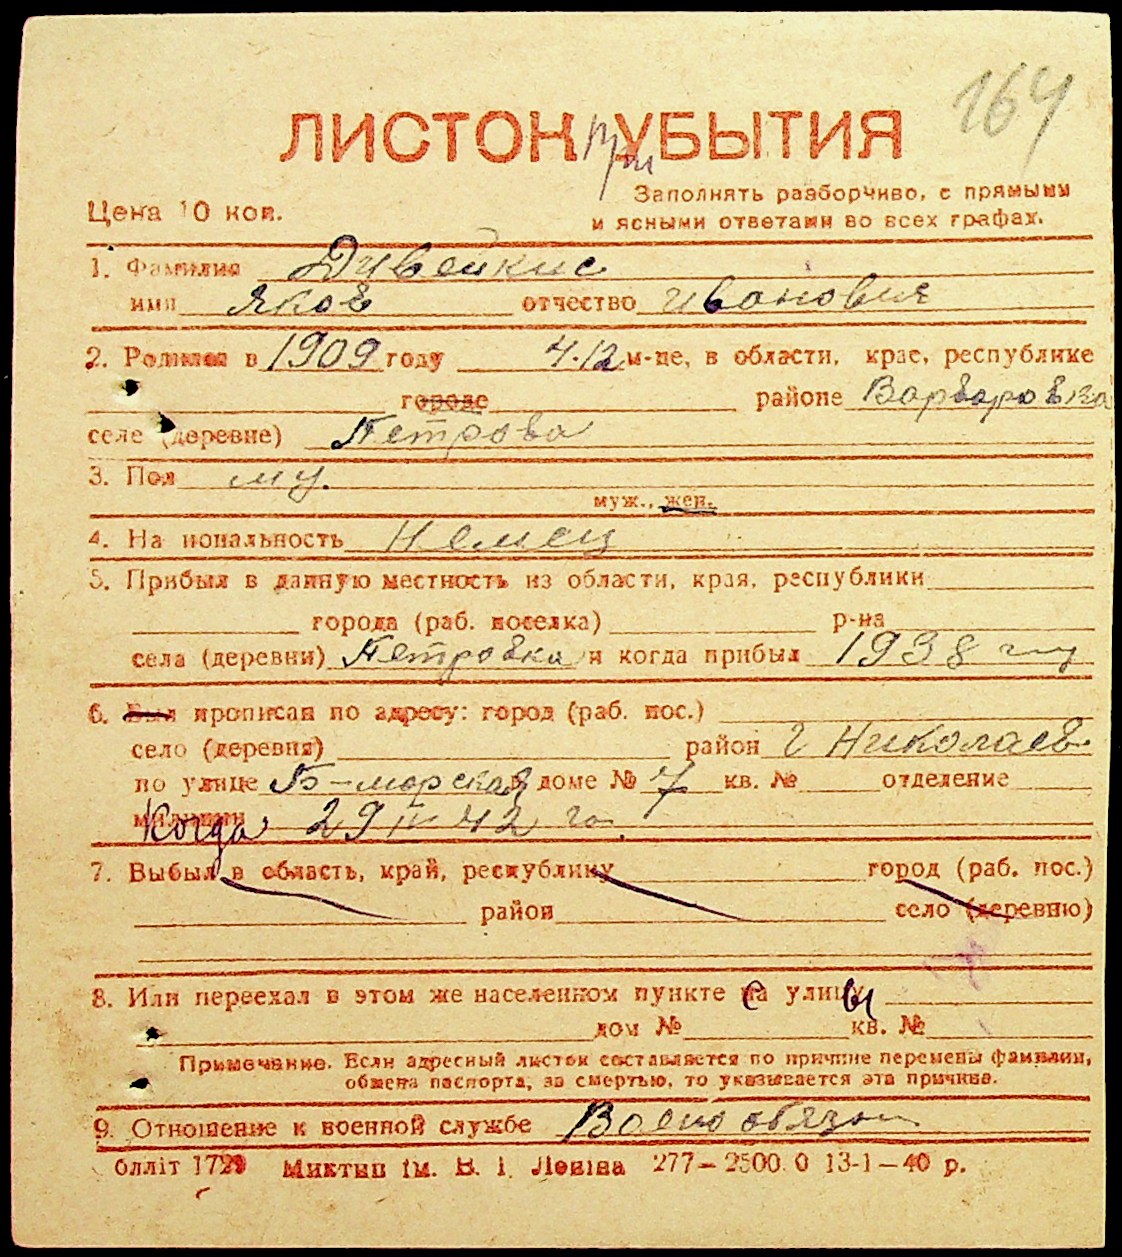 164
ЛИСТОК при УБЫТИЯ
Заполнять разборчиво, с прямыми
Цена 10 коп.
и ясными ответами во всех графах.
1. Фамилия Дивейкис
имя Яков отчество Иванович
2. Родился в 1909 году 4.12 м-це, в области, крае, республике
городе районе Варваровка
селе (деревне) Петрова
3. Пол му.
муж., жен.
4. Национальность Немец
5. Прибыл в данную местность из области, края, республики
города (раб. поселка) р-на
села (деревни) Петровка и когда прибыл 1938 году
6. Был прописан по адресу: город (раб. пос.)
село (деревня) район г Николаев
по улице Б-морская в доме № 7 кв. № отделение
милиции Когда 29 IV 42 го
7. Выбыл в область, край, республику город (раб. пос.)
район село (деревню)
8. Или переехал в этом же населенном пункте с улицы
дом № кв. №
Примечание. Если адресный листок составляется по причине перемены фамилии,
обмена паспорта, за смертью, то указывается эта причина.
9. Отношение к военной службе Военообязан
блліт 1729 Миктип ім. В. І. Леніна 277—2500.0 13-1—40 р.